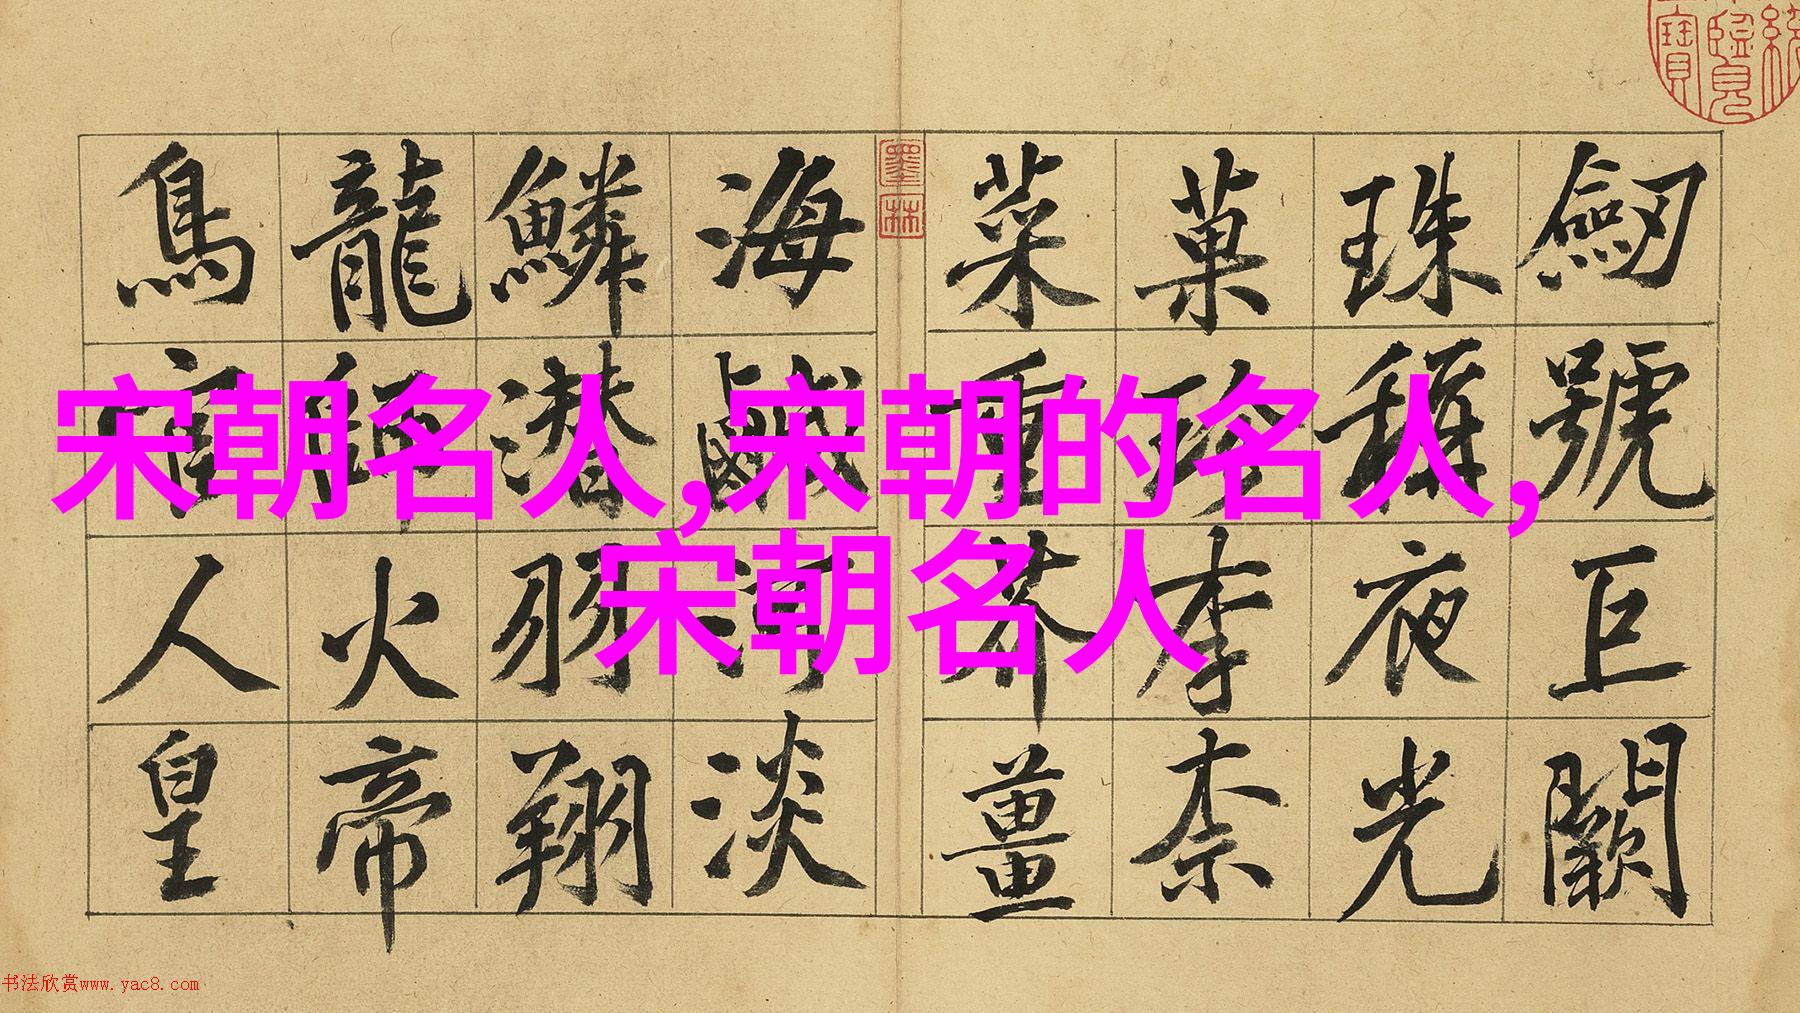 宋朝名人,宋朝的名人,
宋朝名人
劒號巨闕
珠稱夜光
菓珍李奈
菜重芥薑
海鹹河淡
鱗潛羽翔
龍師火帝
鳥官人皇
墨林
书法欣赏www.yac8.com